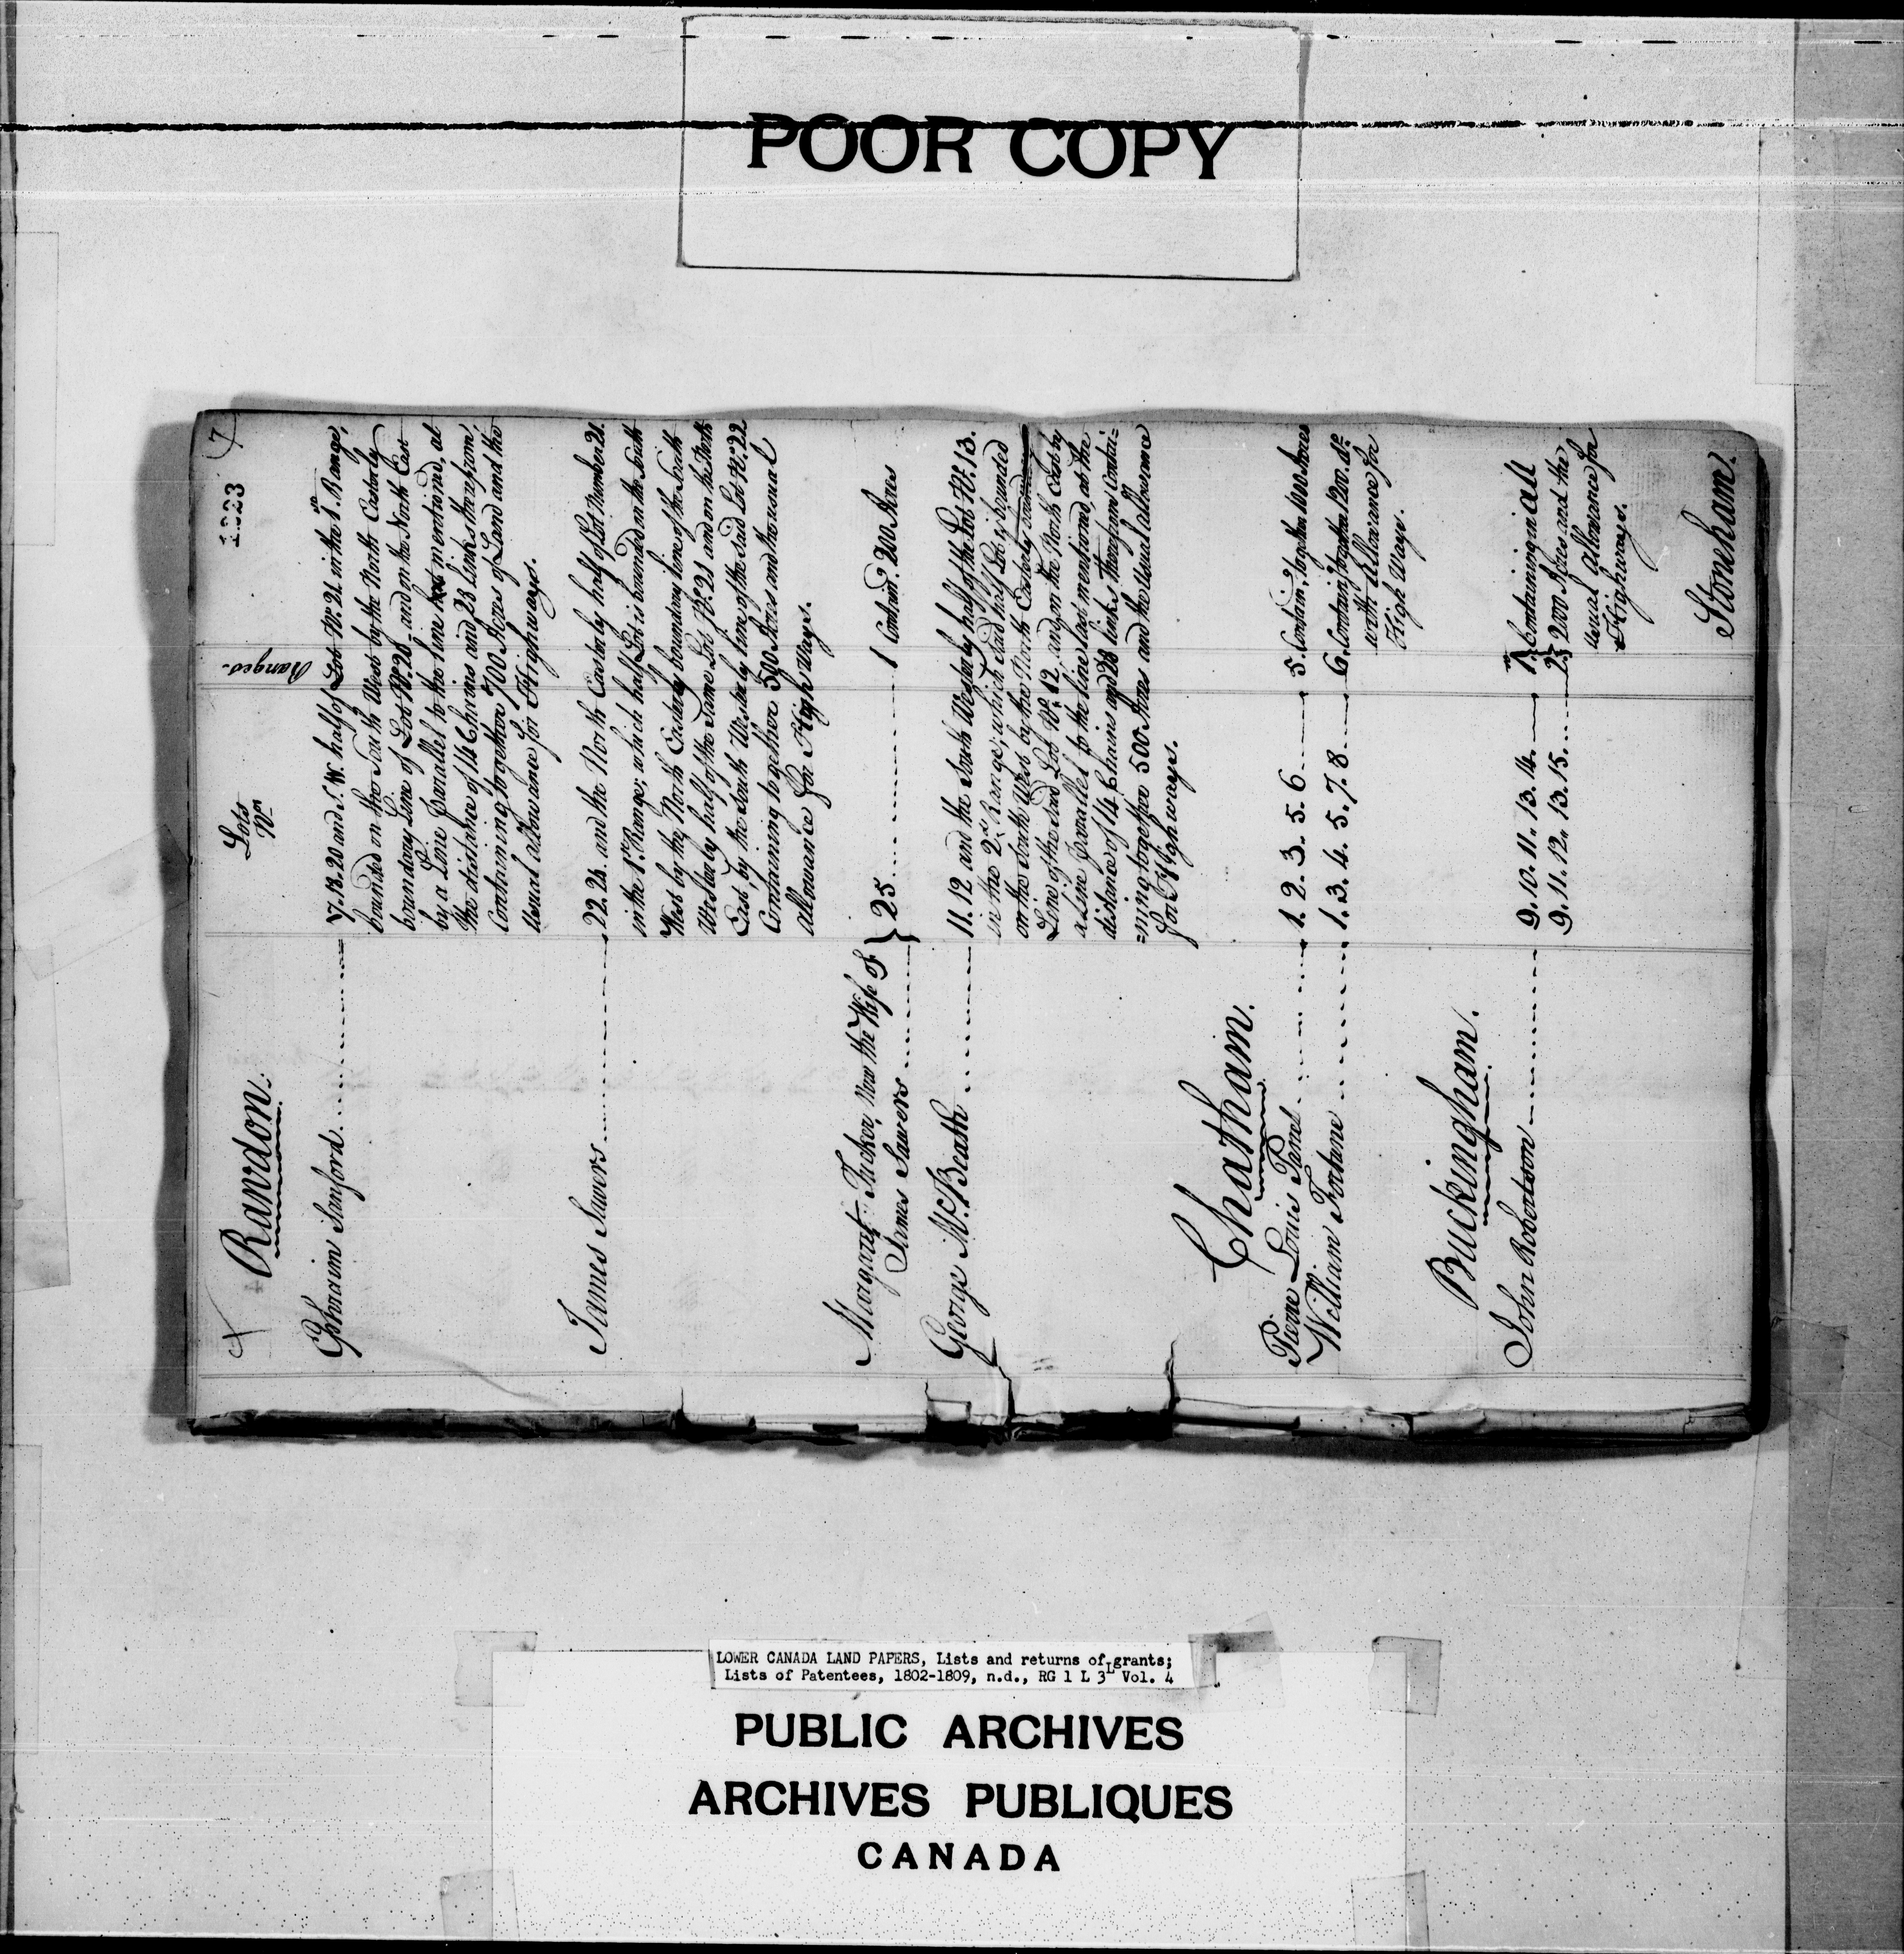 POOR COPY
1223
7
Lots
Nos
Ranges.
Rawdon.
Ephraim Sanford
17. 18. 20 and S. W. half of Lot No. 21 in the 1st Range,
bounded on the South West by the North Easterly
boundary Line of Lot No. 20, and on the North East
by a Line Parallel to the line last mentioned, at
the distance of 14 Chains and 23 Links therefrom,
Containing together 700 Acres of Land and the
usual allowance for Highways.
James Sawers
22. 23. and the North Easterly half of Lot Number 21.
in the 1st Range; which half Lot is bounded on the South
West by the North Easterly boundary line of the South
Westerly half of the same Lot No. 21 and on the North
East, by the South Westerly line of the said Lot No. 22
Containing together 500 Acres and the usual
allowance for High Ways.
Margaret Tucker, Now the Wife of
James Sawers } 25 1 Contain.g 200 Acres
George McBeath
11. 12 and the South Westerly half of the Lot No. 13.
in the 2d Range; which said half Lot is bounded
on the South West by the North Easterly boundary
Line of the said Lot No. 12. and on the North East by
a Line Parallel to the line last mentioned, at the
distance of 14 Chains and 23 links therefrom Contai=
=ning together 500 Acres and the Usual allowance
for Highways.
Chatham.
Pierre Louis Panet 1. 2. 3. 5. 6 5. Contain.g together 1000 Acres
William Fortune 1. 3. 4. 5. 7. 8 6. Contain.g together 1200. do.
with Allowance for
High Ways.
Buckingham.
John Robertson 9. 10. 11. 13. 14. 1st } Containing in all
9. 11. 12. 13. 15. 2d } 2000 Acres and the
usual Allowance for
Highways.
Stoneham.
LOWER CANADA LAND PAPERS, Lists and returns of grants;
Lists of Patentees, 1802-1809, n.d., RG 1 L 3L Vol. 4
PUBLIC ARCHIVES
ARCHIVES PUBLIQUES
CANADA